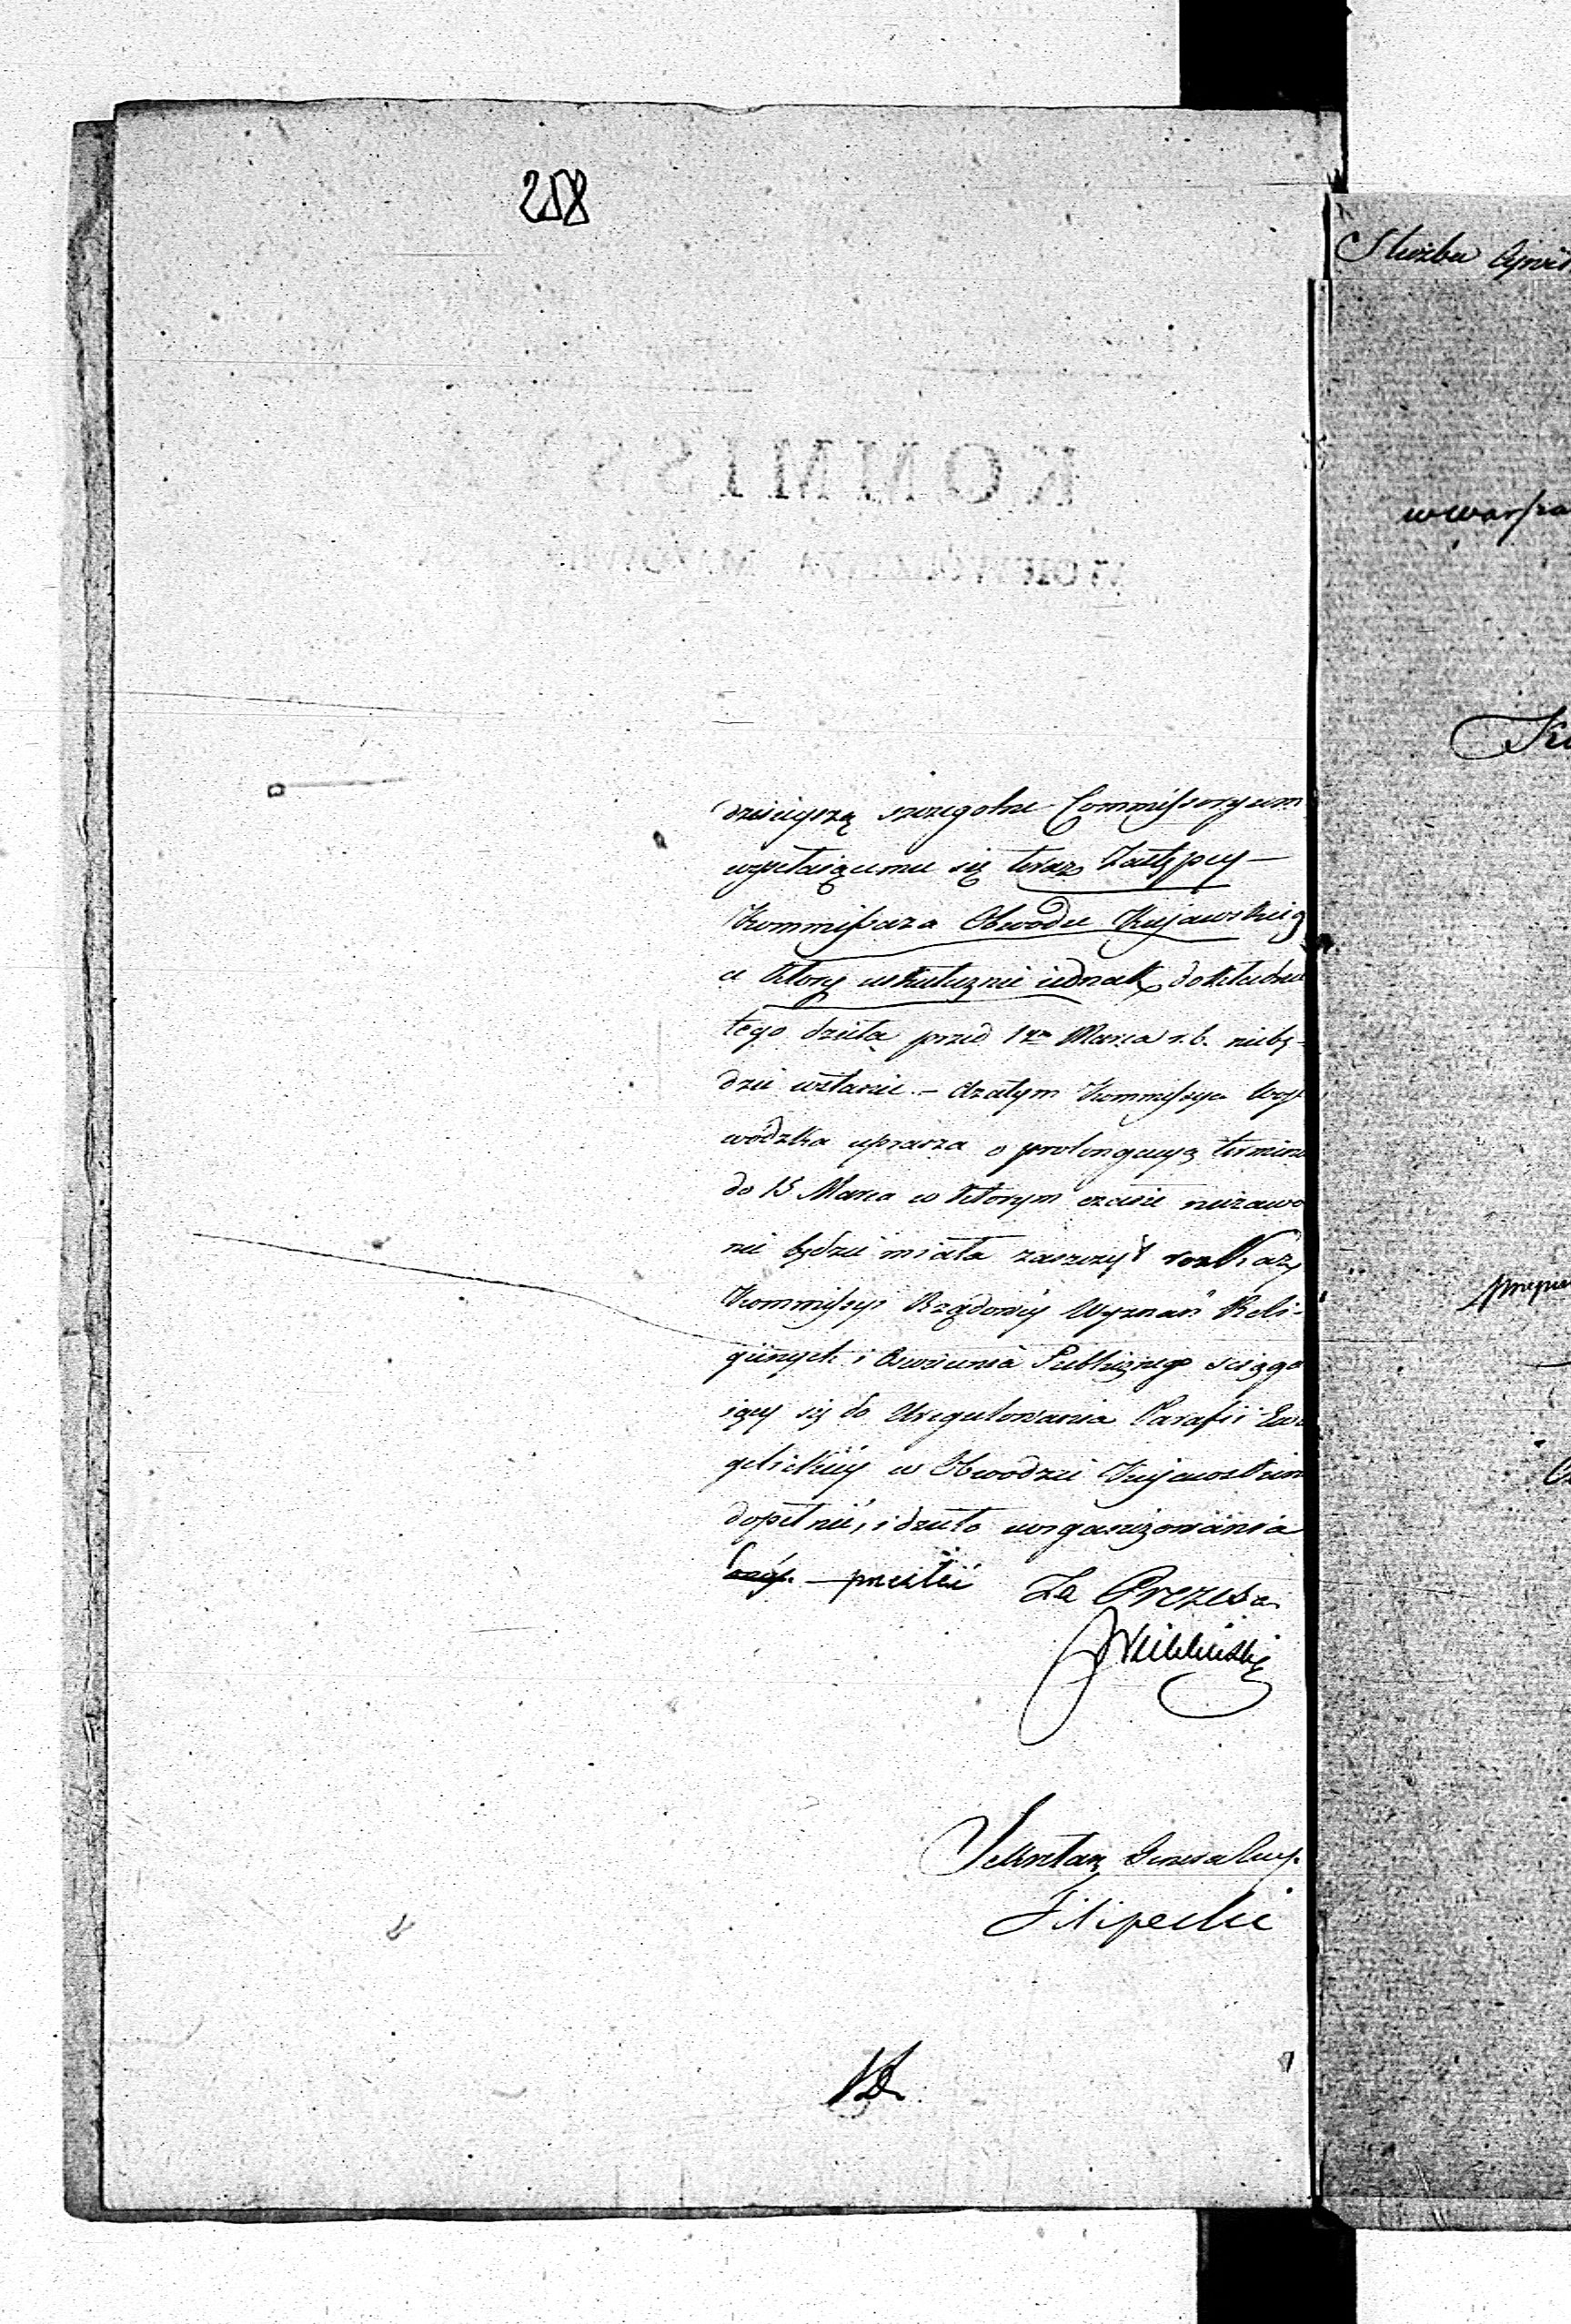 258
KOMMISSYA
WOIEWODZTWA MAZOW
dzisieyszą szczegolne Commissoryum
wysełaiącemu się teraz Zastępcy —
Kommissarza Obwodu Kujawskieg
a ktory uskutecznić iednak
tego dzieła przed 1ym Marca r. b. niebę-
dzie wstanie. — Zatym Kommissya Woje
wódzka uprasza o prolongacyą termin
do 15 Marca w ktorym czasie niezawo
nie będzie miała zaszczyt rozkazy
Kommissyi Rządowéy Wyznań Reli-
giinych i Oswiecenia Publicznego sciąga
iący się do Uregulowania Parafii Ewa
gelickiéy w Obwodzie Kujawskim
dopełnić, i dzieło uorganizowania
przesłać
Za Prezesa
Sekretarz Generalny
Filipecki
Służba Cywil
w warsza